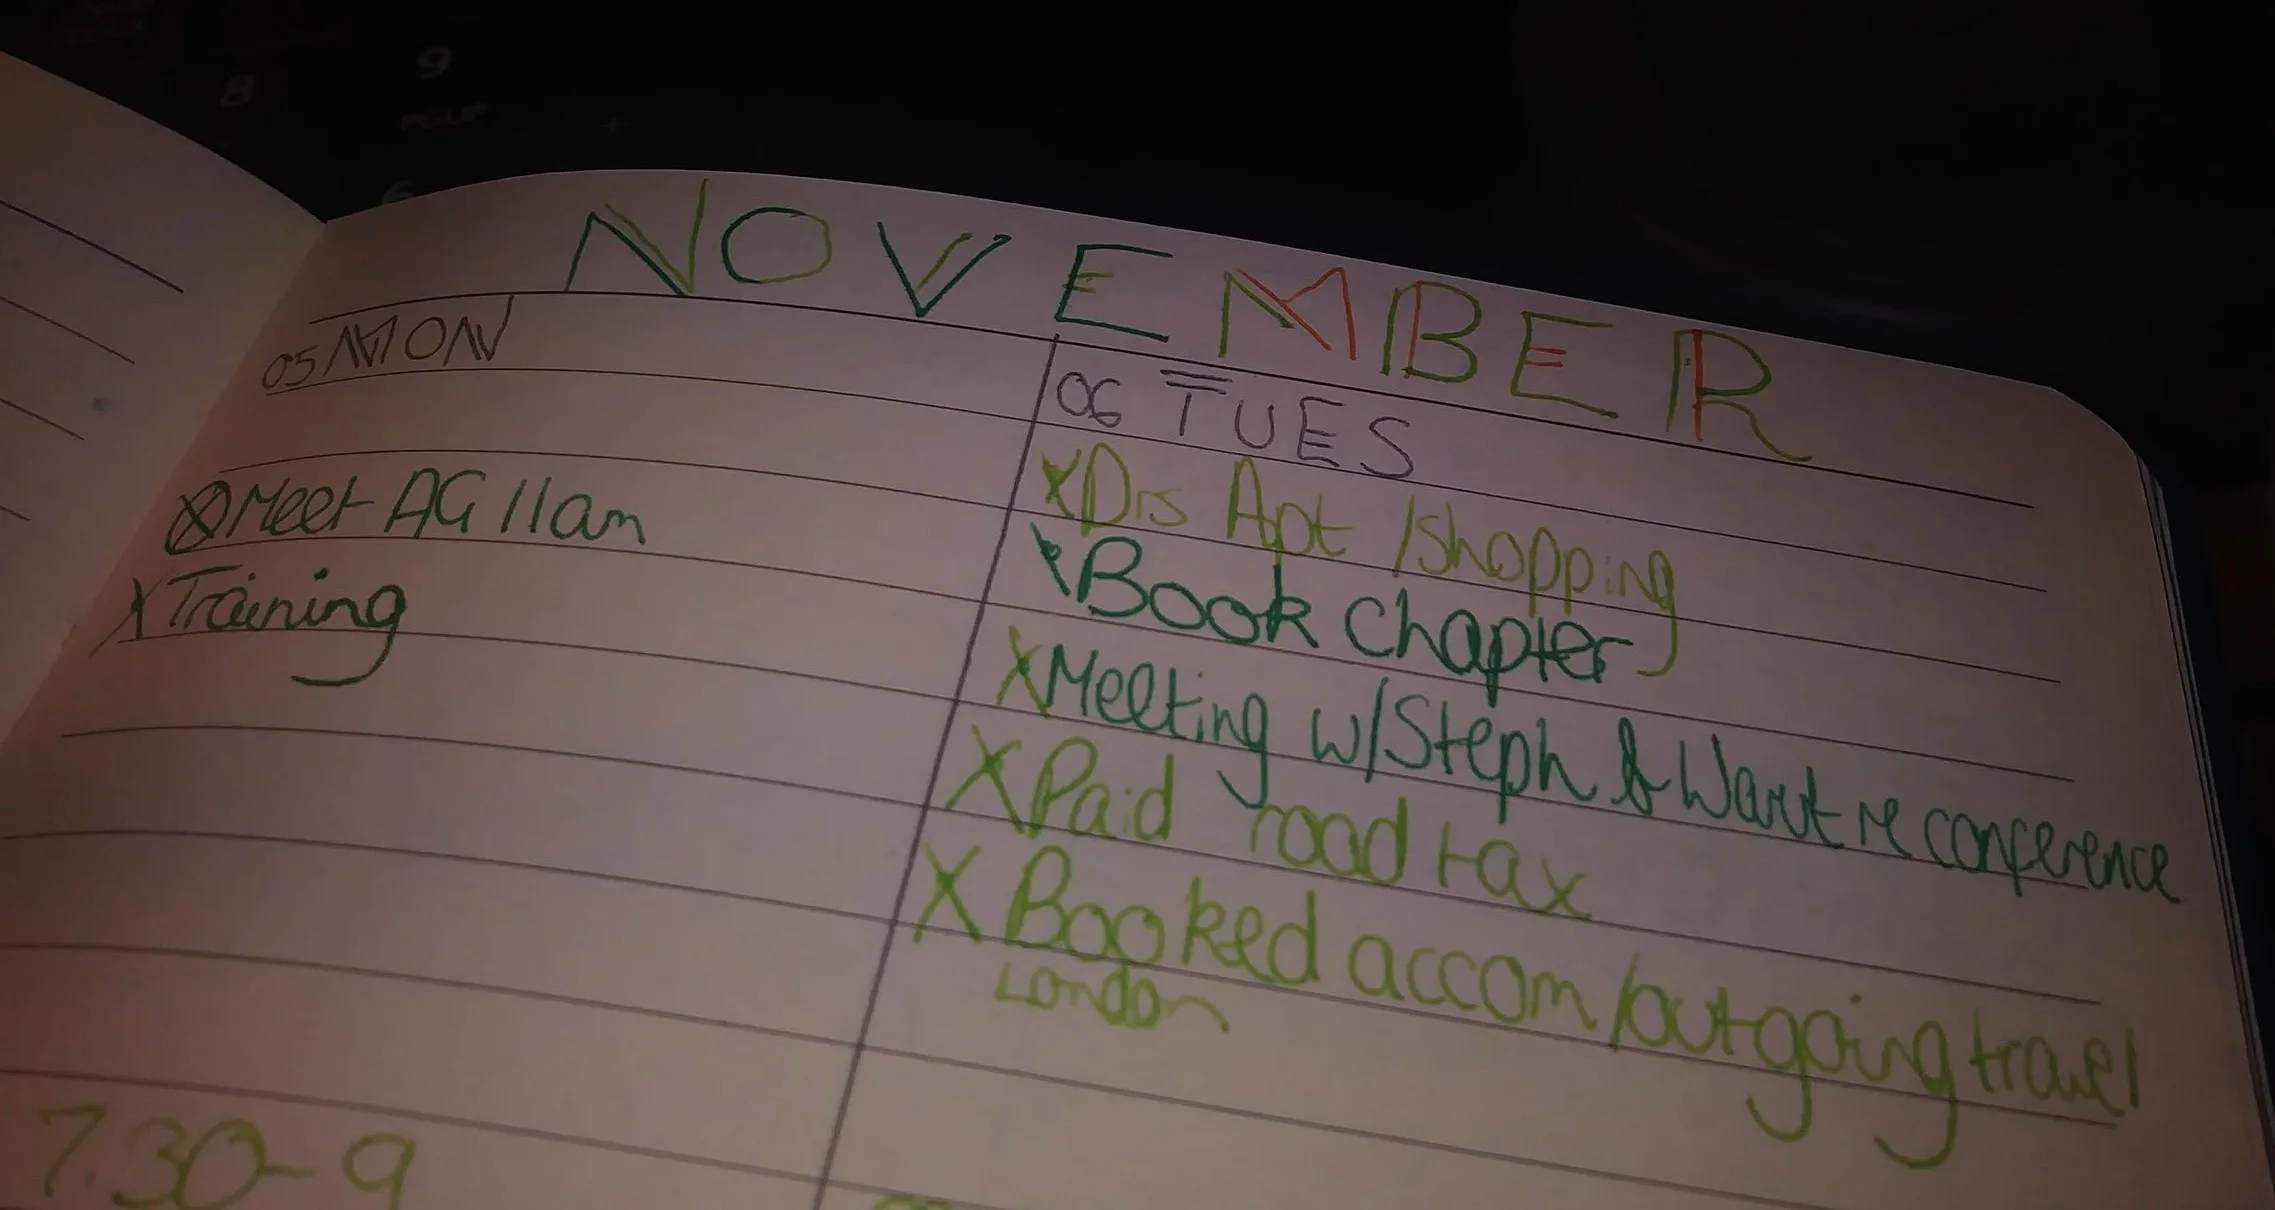 9
8
PGUP
+
6
NOVEMBER
05 MON
X Meet AG 11am
X Training
7.30-9
06 TUES
X Drs Apt /shopping
\ Book Chapter
X Meeting w/Steph & Wout re conference
X Paid road tax
X Booked accom/outgoing travel
London